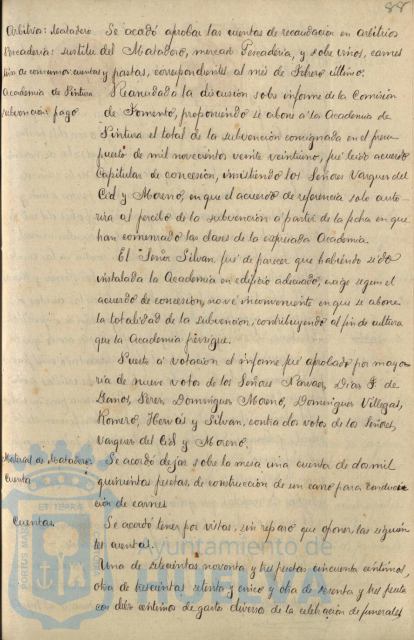 88
Arbitrios: Matadero Se acordó aprobar las cuentas de recaudacion en Arbitrios
Pescaderia: sustitu del Matadero, mercado Pescaderia, y sobre vinos, carnes
cion de consumos cuentas y pastas, correspondientes al mes de Febrero último.
Academia de Pintura Reanudada la discusion sobre informe de la Comision
subvencion pago de Fomento, proponiendo se abone a la Academia de
Pintura el total de la subvencion consignada en el presu
puesto de mil novecientos veinte veintiuno, fué leido acuerdo
Capitular de concesion, insistiendo los Señores Vazquez del
Cid y Moreno, en que el acuerdo de referencia solo auto-
riza al percibo de la subvencion a partir de la fecha en que
han comenzado las clases de la expresada Academia.
El Señor Silvan fué de parecer que habiendo sido
instalada la Academia en edificio adecuado, exige segun el
acuerdo de concesion, no vé inconveniente en que se abone
la totalidad de la subvencion, contribuyendo al fin de cultura
que la Academia persigue.
Puesto a votacion el informe fué aprobado por mayo-
ria de nueve votos de los Señores Narvaez, Diaz F. de
Llanos, Perez, Dominguez Moreno, Dominguez Villegas,
Romero, Hervás y Silvan, contra dos votos de los Señores
Vazquez del Cid y Moreno.
Material de Matadero Se acordó dejar sobre la mesa una cuenta de dos mil
Cuenta quinientas pesetas, de construccion de un carro para conduc
ción de carnes
Cuentas. Se acordó tener por vistas, sin reparo que oponer, las siguien
tes cuentas.
Una de setecientas noventa y tres pesetas cincuenta centimos,
otra de trescientas setenta y cinco y otra de sesenta y tres pesetas
con doce centimos de gastos diversos de la celebracion de funerales
PORTUS MARIS ET TERRAE
Ayuntamiento de
HUELVA